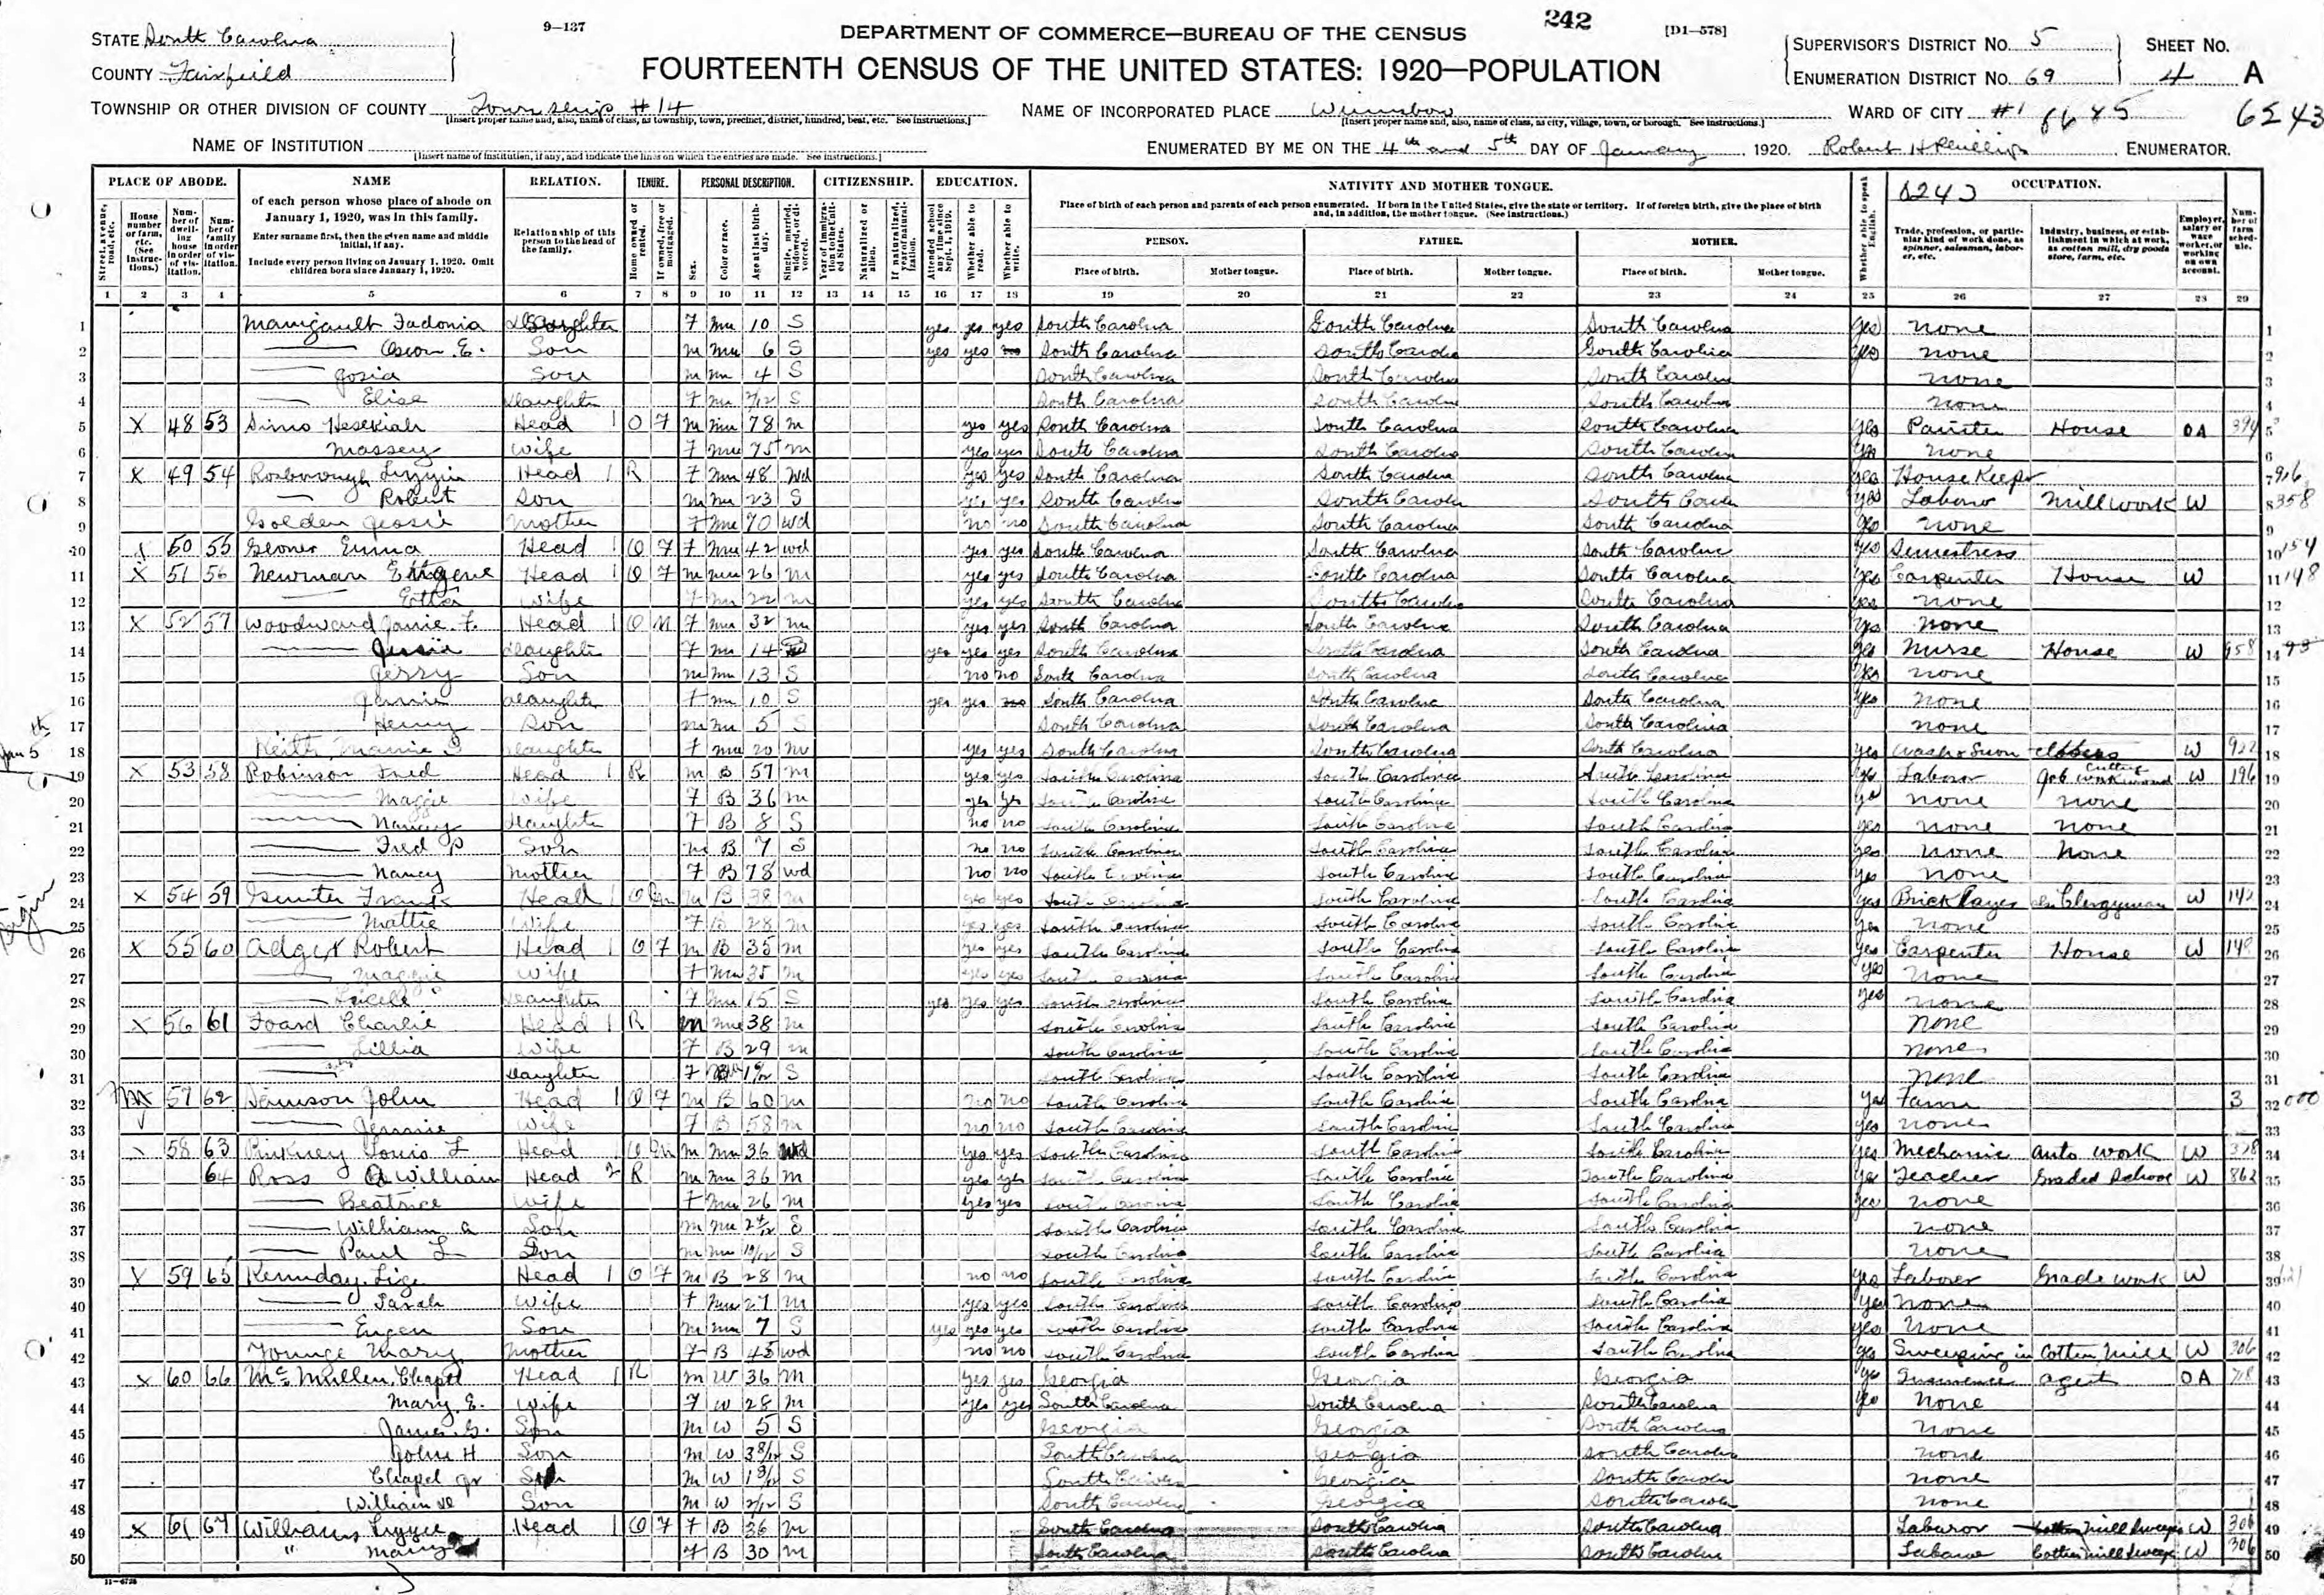 9-137
DEPARTMENT OF COMMERCE—BUREAU OF THE CENSUS
242
[D1—578]
STATE South Carolina
COUNTY Fairfield
FOURTEENTH CENSUS OF THE UNITED STATES: 1920—POPULATION
SUPERVISOR'S DISTRICT No. 5
ENUMERATION DISTRICT No. 69
SHEET No. 4 A
TOWNSHIP OR OTHER DIVISION OF COUNTY Township #14
[Insert proper name and, also, name of class, as township, town, precinct, district, hundred, beat, etc. See instructions.]
NAME OF INCORPORATED PLACE Winnsboro
[Insert proper name and, also, name of class, as city, village, town, or borough. See instructions.]
WARD OF CITY #1 6243
NAME OF INSTITUTION
[Insert name of institution, if any, and indicate the lines on which the entries are made. See instructions.]
ENUMERATED BY ME ON THE 4th and 5th DAY OF January, 1920. Robert H Phillips, ENUMERATOR.
PLACE OF ABODE. NAME RELATION. TENURE. PERSONAL DESCRIPTION. CITIZENSHIP. EDUCATION. NATIVITY AND MOTHER TONGUE. OCCUPATION.
of each person whose place of abode on January 1, 1920, was in this family.
Enter surname first, then the given name and middle initial, if any.
Include every person living on January 1, 1920. Omit children born since January 1, 1920.
Relationship of this person to the head of the family.
Place of birth of each person and parents of each person enumerated. If born in the United States, give the state or territory. If of foreign birth, give the place of birth and, in addition, the mother tongue. (See instructions.)
PERSON. FATHER. MOTHER.
Place of birth. Mother tongue. Place of birth. Mother tongue. Place of birth. Mother tongue.
1 2 3 4 5 6 7 8 9 10 11 12 13 14 15 16 17 18 19 20 21 22 23 24 25 26 27 28 29
1 Manigault Fadonia Daughter F Mu 10 S yes yes yes South Carolina South Carolina South Carolina yes none 1
2 Son M Mu 6 S yes yes no South Carolina South Carolina South Carolina yes none 2
3 Josia Son M Mu 4 S South Carolina South Carolina South Carolina none 3
4 Elise Daughter F Mu 7/12 S South Carolina South Carolina South Carolina none 4
5 X 48 53 Sims Hesekiah Head 1 O F M Mu 78 M yes yes South Carolina South Carolina South Carolina yes Painter House OA 5
6 Massey Wife F Mu 75 M yes yes South Carolina South Carolina South Carolina yes none 6
7 X 49 54 Rosborough Lizzie Head 1 R F Mu 48 Wd yes yes South Carolina South Carolina South Carolina yes House Keeper 7
8 Robert Son M Mu 23 S yes yes South Carolina South Carolina South Carolina yes Labor Mill work W 8 358
9 Golden Jessie Mother F Mu 70 wd no no South Carolina South Carolina South Carolina yes none 9
10 50 55 Emma Head 1 O F F Mu 42 wd yes yes South Carolina South Carolina South Carolina yes Semestress 10 154
11 X 51 56 Newman Eugene Head 1 O F M Mu 26 M yes yes South Carolina South Carolina South Carolina yes Carpenter House W 11 148
12 Etta Wife F Mu 22 M yes yes South Carolina South Carolina South Carolina yes none 12
13 X 52 57 Woodward Janie F. Head 1 O M F Mu 32 M yes yes South Carolina South Carolina South Carolina yes none 13
14 Jessie Daughter F Mu 14 yes yes yes South Carolina South Carolina South Carolina yes Nurse House W 958 14
15 Jerry Son M Mu 13 S no no South Carolina South Carolina South Carolina yes none 15
16 Jennie Daughter F Mu 10 S yes yes no South Carolina South Carolina South Carolina yes none 16
17 Henry Son M Mu 5 S South Carolina South Carolina South Carolina none 17
18 Keith Mamie Daughter F Mu 20 M yes yes South Carolina South Carolina South Carolina yes Wash & Iron clothes W 18
Jan 5th
19 X 53 58 Robinson Fred Head 1 R M B 57 M yes yes South Carolina South Carolina South Carolina yes Labor Job work cutting wood W 196 19
20 Maggie Wife F B 36 M yes yes South Carolina South Carolina South Carolina ye none none 20
21 Nancy Daughter F B 8 S no no South Carolina South Carolina South Carolina yes none none 21
22 Fred P Son M B 7 S no no South Carolina South Carolina South Carolina yes none none 22
23 Nancy Mother F B 78 wd no no South Carolina South Carolina South Carolina yes none 23
24 X 54 59 Gunter Frank Head 1 O M B 38 M yes yes South Carolina South Carolina South Carolina yes Brick layer Clergyman W 24
25 Mattie Wife F B 28 M yes yes South Carolina South Carolina South Carolina yes none 25
26 X 55 60 Adger Robert Head 1 O F M B 35 M yes yes South Carolina South Carolina South Carolina yes Carpenter House W 148 26
27 Maggie Wife F Mu 35 M yes yes South Carolina South Carolina South Carolina yes none 27
28 Lucele Daughter F Mu 15 S yes yes yes South Carolina South Carolina South Carolina yes none 28
29 X 56 61 Foard Charlie Head 1 R M Mu 38 M South Carolina South Carolina South Carolina none 29
30 Lillia Wife F B 29 M South Carolina South Carolina South Carolina none 30
31 Daughter F S South Carolina South Carolina South Carolina none 31
32 57 62 John Head 1 O F M B 60 M no no South Carolina South Carolina South Carolina yes Farm 3 32 000
33 Jennie Wife F B 58 M no no South Carolina South Carolina South Carolina yes none 33
34 58 63 Pinkney Louis L Head O M Mu 36 wd yes yes South Carolina South Carolina South Carolina yes Mechanic auto work W 34
35 64 Ross William Head 2 R M Mu 36 M yes yes South Carolina South Carolina South Carolina yes Teacher Graded School W 862 35
36 Beatrice Wife F Mu 26 M yes yes South Carolina South Carolina South Carolina yes none 36
37 William A Son M Mu S South Carolina South Carolina South Carolina none 37
38 Paul L Son M Mu 10/12 S South Carolina South Carolina South Carolina none 38
39 X 59 65 Kennday Lige Head 1 O F M B 28 M no no South Carolina South Carolina South Carolina yes Laborer Grade work W 39
40 Sarah Wife F Mu 27 M yes yes South Carolina South Carolina South Carolina yes none 40
41 Eugen Son M Mu 7 S yes yes yes South Carolina South Carolina South Carolina yes none 41
42 Younge Mary Mother F B 45 wd no no South Carolina South Carolina South Carolina ye Sweeping in Cotton Mill W 306 42
43 X 60 66 McMullen Chapel Head 1 R M W 36 M yes yes Georgia Georgia Georgia ye Insurence agent OA 718 43
44 Mary E. Wife F W 28 M yes yes South Carolina South Carolina South Carolina yes none 44
45 James G. Son M W 5 S Georgia Georgia South Carolina none 45
46 John H Son M W 3 8/12 S South Carolina Georgia South Carolina none 46
47 Chapel Jr Son M W S South Carolina Georgia South Carolina none 47
48 William Son M W 2/12 S South Carolina Georgia South Carolina none 48
49 X 61 67 Williams Lizzie Head 1 O F F B 36 M South Carolina South Carolina South Carolina Laboror Cotton mill Sweeper W 306 49
50 " Mary F B 30 M South Carolina South Carolina South Carolina Labore Cotton mill Sweep W 306 50
11—6726